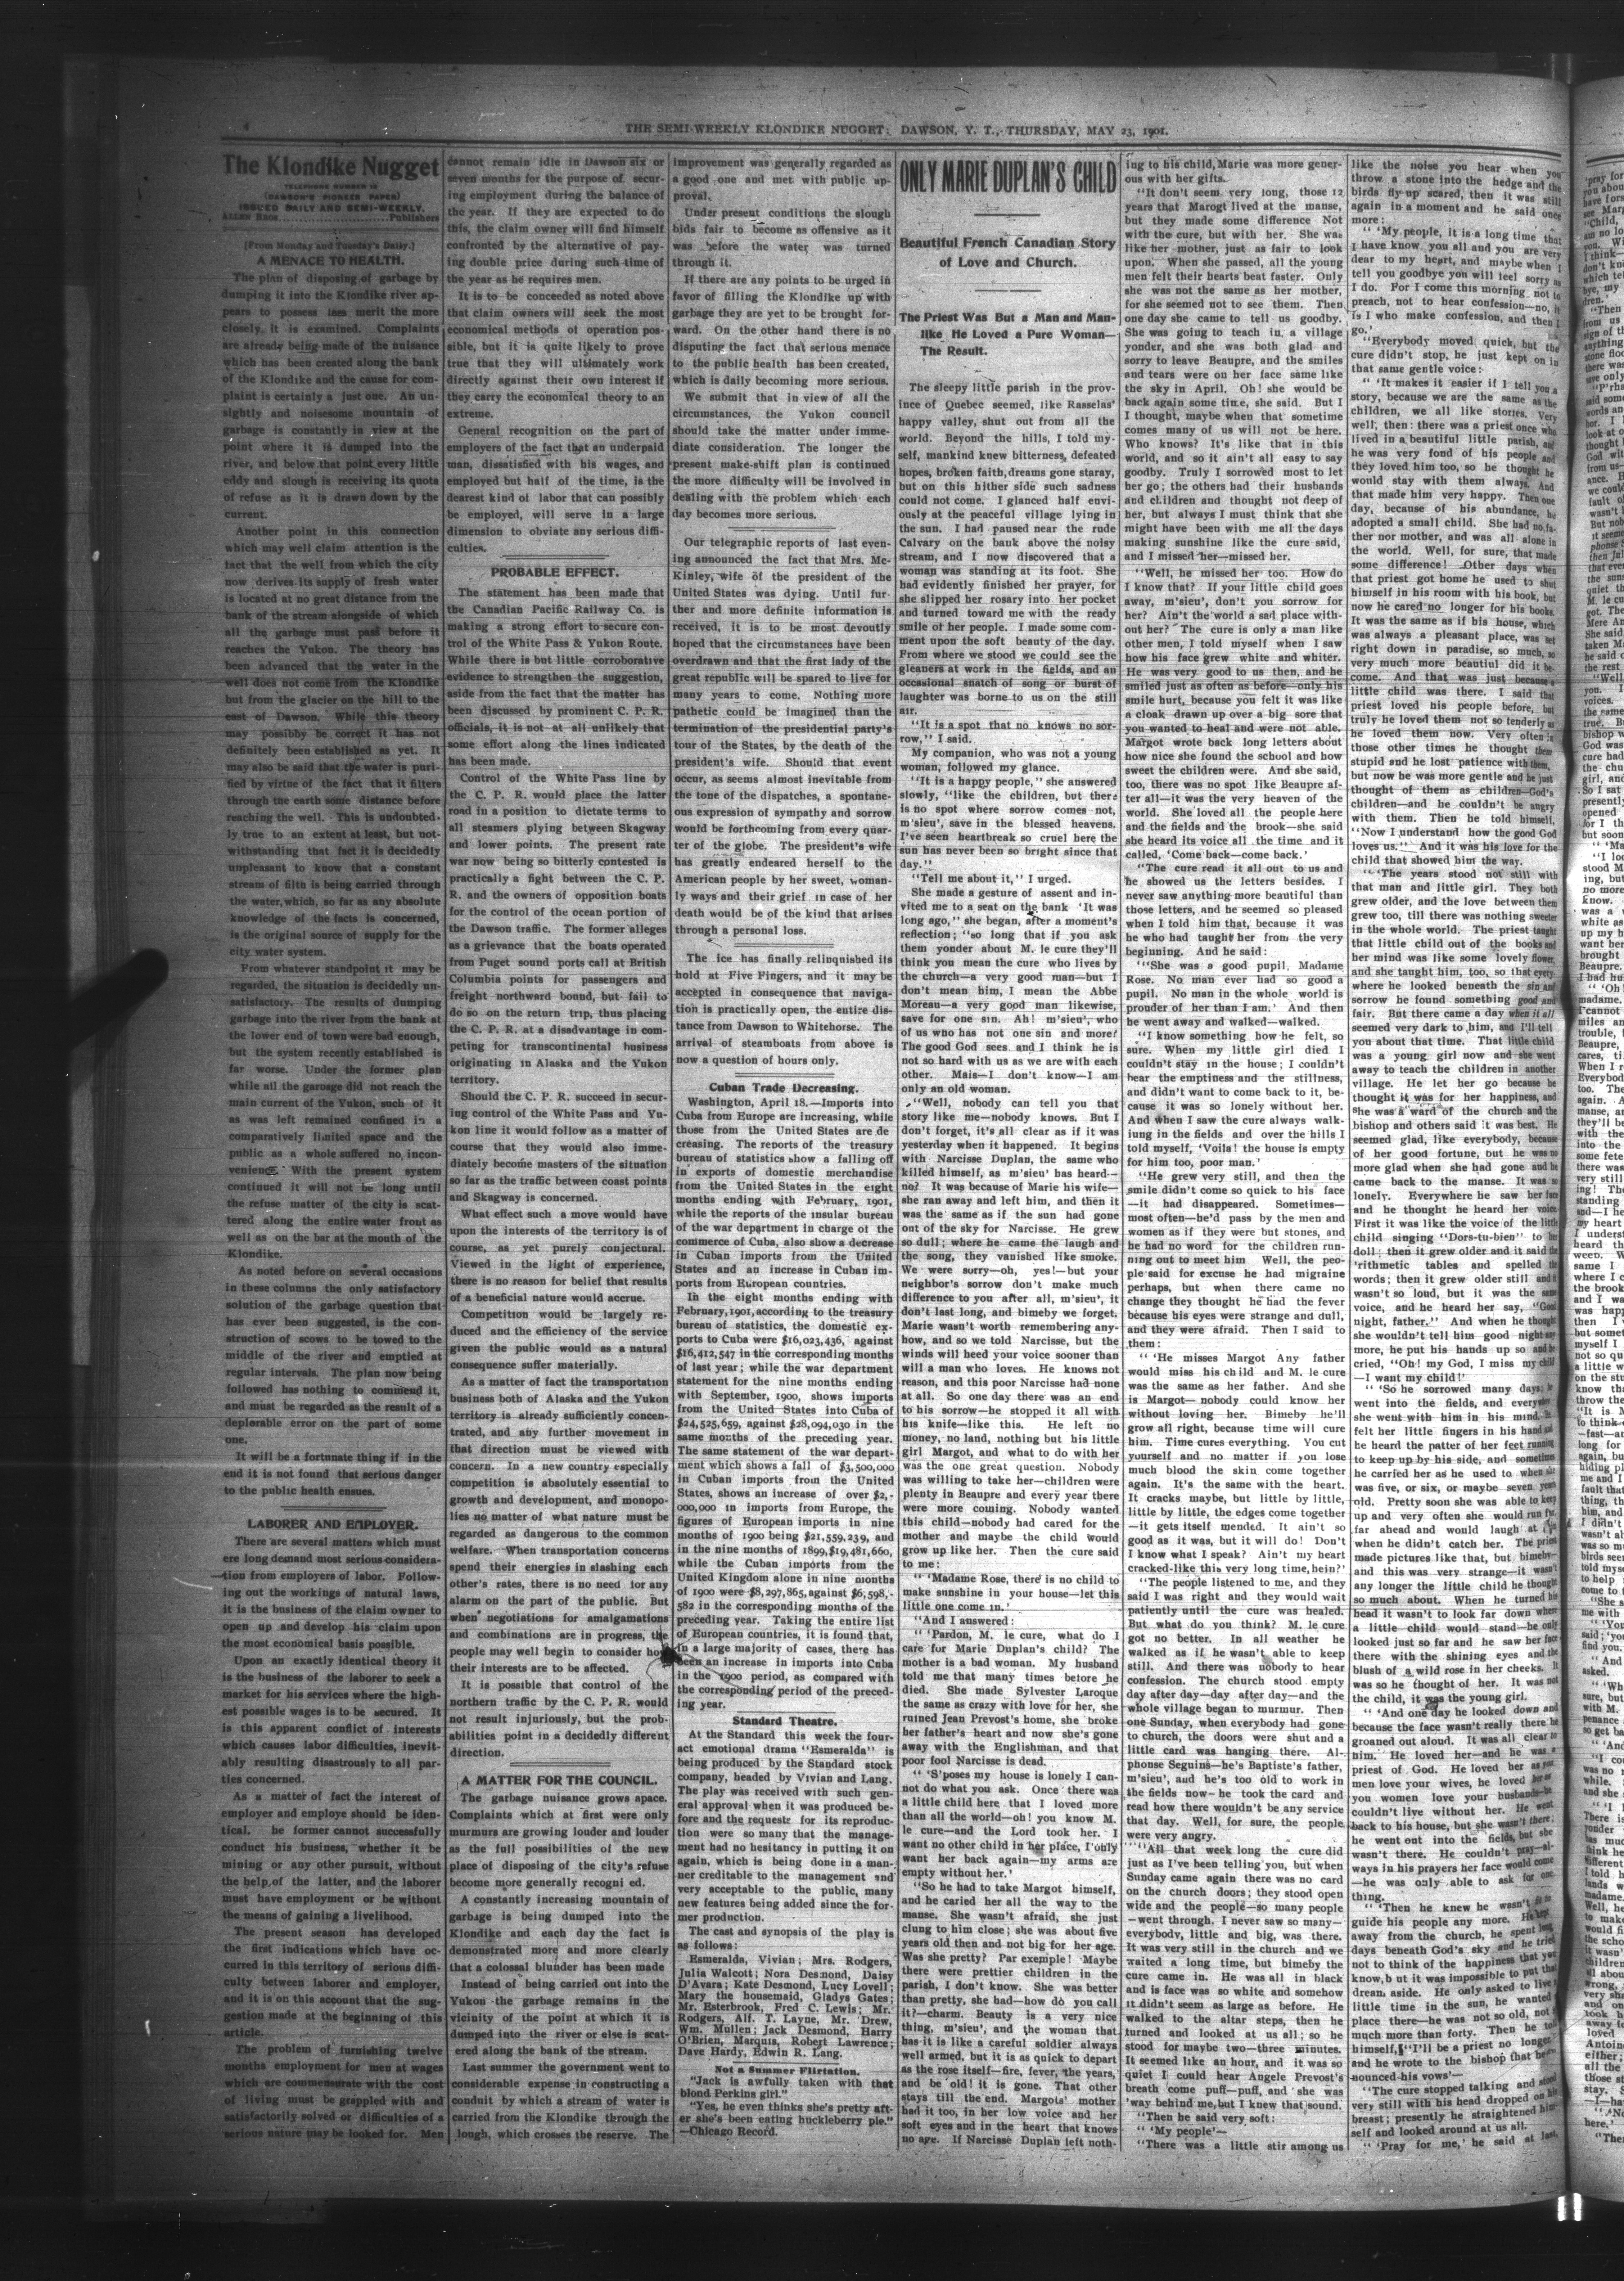 4
THE SEMI-WEEKLY KLONDIKE NUGGET: DAWSON, Y. T., THURSDAY, MAY 23, 1901.
The Klondike Nugget
TELEPHONE NUMBER 12
(DAWSON'S PIONEER PAPER)
ISSUED DAILY AND SEMI-WEEKLY.
ALLEN BROS. Publishers
[From Monday and Tuesday's Daily.]
A MENACE TO HEALTH.
The plan of disposing of garbage by
dumping it into the Klondike river ap-
pears to possess less merit the more
closely it is examined. Complaints
are already being made of the nuisance
which has been created along the bank
of the Klondike and the cause for com-
plaint is certainly a just one. An un-
sightly and noisesome mountain of
garbage is constantly in view at the
point where it is dumped into the
river, and below that point every little
eddy and slough is receiving its quota
of refuse as it is drawn down by the
current.
Another point in this connection
which may well claim attention is the
fact that the well from which the city
now derives its supply of fresh water
is located at no great distance from the
bank of the stream alongside of which
all the garbage must pass before it
reaches the Yukon. The theory has
been advanced that the water in the
well does not come from the Klondike
but from the glacier on the hill to the
east of Dawson. While this theory
may possibly be correct it has not
definitely been established as yet. It
may also be said that the water is puri-
fied by virtue of the fact that it filters
through the earth some distance before
reaching the well. This is undoubted-
ly true to an extent at least, but not-
withstanding that fact it is decidedly
unpleasant to know that a constant
stream of filth is being carried through
the water, which, so far as any absolute
knowledge of the facts is concerned,
is the original source of supply for the
city water system.
From whatever standpoint it may be
regarded, the situation is decidedly un-
satisfactory. The results of dumping
garbage into the river from the bank at
the lower end of town were bad enough,
but the system recently established is
far worse. Under the former plan
while all the garbage did not reach the
main current of the Yukon, such of it
as was left remained confined in a
comparatively limited space and the
public as a whole suffered no incon-
venience. With the present system
continued it will not be long until
the refuse matter of the city is scat-
tered along the entire water front as
well as on the bar at the mouth of the
Klondike.
As noted before on several occasions
in these columns the only satisfactory
solution of the garbage question that
has ever been suggested, is the con-
struction of scows to be towed to the
middle of the river and emptied at
regular intervals. The plan now being
followed has nothing to commend it,
and must be regarded as the result of a
deplorable error on the part of some
one.
It will be a fortunate thing if in the
end it is not found that serious danger
to the public health ensues.
LABORER AND EMPLOYER.
There are several matters which must
ere long demand most serious considera-
tion from employers of labor. Follow-
ing out the workings of natural laws,
it is the business of the claim owner to
open up and develop his claim upon
the most economical basis possible.
Upon an exactly identical theory it
is the business of the laborer to seek a
market for his services where the high-
est possible wages is to be secured. It
is this apparent conflict of interests
which causes labor difficulties, inevit-
ably resulting disastrously to all par-
ties concerned.
As a matter of fact the interest of
employer and employe should be iden-
tical. he former cannot successfully
conduct his business, whether it be
mining or any other pursuit, without
the help of the latter, and the laborer
must have employment or be without
the means of gaining a livelihood.
The present season has developed
the first indications which have oc-
curred in this territory of serious diffi-
culty between laborer and employer,
and it is on this account that the sug-
gestion made at the beginning of this
article.
The problem of furnishing twelve
months employment for men at wages
which are commensurate with the cost
of living must be grappled with and
satisfactorily solved or difficulties of a
serious nature may be looked for. Men
cannot remain idle in Dawson six or
seven months for the purpose of secur-
ing employment during the balance of
the year. If they are expected to do
this, the claim owner will find himself
confronted by the alternative of pay-
ing double price during such time of
the year as he requires men.
It is to be conceded as noted above
that claim owners will seek the most
economical methods of operation pos-
sible, but it is quite likely to prove
true that they will ultimately work
directly against their own interest if
they carry the economical theory to an
extreme.
General recognition on the part of
employers of the fact that an underpaid
man, dissatisfied with his wages, and
employed but half of the time, is the
dearest kind of labor that can possibly
be employed, will serve in a large
dimension to obviate any serious diffi-
culties.
PROBABLE EFFECT.
The statement has been made that
the Canadian Pacific Railway Co. is
making a strong effort to secure con-
trol of the White Pass & Yukon Route.
While there is but little corroborative
evidence to strengthen the suggestion,
aside from the fact that the matter has
been discussed by prominent C. P. R.
officials, it is not at all unlikely that
some effort along the lines indicated
has been made.
Control of the White Pass line by
the C. P. R. would place the latter
road in a position to dictate terms to
all steamers plying between Skagway
and lower points. The present rate
war now being so bitterly contested is
practically a fight between the C. P.
R. and the owners of opposition boats
for the control of the ocean portion of
the Dawson traffic. The former alleges
as a grievance that the boats operated
from Puget sound ports call at British
Columbia points for passengers and
freight northward bound, but fail to
do so on the return trip, thus placing
the C. P. R. at a disadvantage in com-
peting for transcontinental business
originating in Alaska and the Yukon
territory.
Should the C. P. R. succeed in secur-
ing control of the White Pass and Yu-
kon line it would follow as a matter of
course that they would also imme-
diately become masters of the situation
so far as the traffic between coast points
and Skagway is concerned.
What effect such a move would have
upon the interests of the territory is of
course, as yet purely conjectural.
Viewed in the light of experience,
there is no reason for belief that results
of a beneficial nature would accrue.
Competition would be largely re-
duced and the efficiency of the service
given the public would as a natural
consequence suffer materially.
As a matter of fact the transportation
business both of Alaska and the Yukon
territory is already sufficiently concen-
trated, and any further movement in
that direction must be viewed with
concern. In a new country especially
competition is absolutely essential to
growth and development, and monopo-
lies no matter of what nature must be
regarded as dangerous to the common
welfare. When transportation concerns
spend their energies in slashing each
other's rates, there is no need for any
alarm on the part of the public. But
when negotiations for amalgamations
and combinations are in progress, the
people may well begin to consider how
their interests are to be affected.
It is possible that control of the
northern traffic by the C. P. R. would
not result injuriously, but the prob-
abilities point in a decidedly different
direction.
A MATTER FOR THE COUNCIL.
The garbage nuisance grows apace.
Complaints which at first were only
murmurs are growing louder and louder
as the full possibilities of the new
place of disposing of the city's refuse
become more generally recogni ed.
A constantly increasing mountain of
garbage is being dumped into the
Klondike and each day the fact is
demonstrated more and more clearly
that a colossal blunder has been made
Instead of being carried out into the
Yukon the garbage remains in the
vicinity of the point at which it is
dumped into the river or else is scat-
ered along the bank of the stream.
Last summer the government went to
considerable expense in constructing a
conduit by which a stream of water is
carried from the Klondike through the
lough, which crosses the reserve. The
improvement was generally regarded as
a good one and met with public ap-
proval.
Under present conditions the slough
bids fair to become as offensive as it
was before the water was turned
through it.
If there are any points to be urged in
favor of filling the Klondike up with
garbage they are yet to be brought for-
ward. On the other hand there is no
disputing the fact that serious menace
to the public health has been created,
which is daily becoming more serious.
We submit that in view of all the
circumstances, the Yukon council
should take the matter under imme-
diate consideration. The longer the
present make-shift plan is continued
the more difficulty will be involved in
dealing with the problem which each
day becomes more serious.
Our telegraphic reports of last even-
ing announced the fact that Mrs. Mc-
Kinley, wife of the president of the
United States was dying. Until fur-
ther and more definite information is
received, it is to be most devoutly
hoped that the circumstances have been
overdrawn and that the first lady of the
great republic will be spared to live for
many years to come. Nothing more
pathetic could be imagined than the
termination of the presidential party's
tour of the States, by the death of the
president's wife. Should that event
occur, as seems almost inevitable from
the tone of the dispatches, a spontane-
ous expression of sympathy and sorrow
would be forthcoming from every quar-
ter of the globe. The president's wife
has greatly endeared herself to the
American people by her sweet, woman-
ly ways and their grief in case of her
death would be of the kind that arises
through a personal loss.
The ice has finally relinquished its
hold at Five Fingers, and it may be
accepted in consequence that naviga-
tion is practically open, the entire dis-
tance from Dawson to Whitehorse. The
arrival of steamboats from above is
now a question of hours only.
Cuban Trade Decreasing.
Washington, April 18.—Imports into
Cuba from Europe are increasing, while
those from the United States are de
creasing. The reports of the treasury
bureau of statistics show a falling off
in exports of domestic merchandise
from the United States in the eight
months ending with February, 1901,
while the reports of the insular bureau
of the war department in charge of the
commerce of Cuba, also show a decrease
in Cuban imports from the United
States and an increase in Cuban im-
ports from European countries.
In the eight months ending with
February, 1901, according to the treasury
bureau of statistics, the domestic ex-
ports to Cuba were $16,023,436, against
$16,412,547 in the corresponding months
of last year; while the war department
statement for the nine months ending
with September, 1900, shows imports
from the United States into Cuba of
$24,525,659, against $28,094,030 in the
same months of the preceding year.
The same statement of the war depart-
ment which shows a fall of $3,500,000
in Cuban imports from the United
States, shows an increase of over $2,-
000,000 in imports from Europe, the
figures of European imports in nine
months of 1900 being $21,559,239, and
in the nine months of 1899, $19,481,660,
while the Cuban imports from the
United Kingdom alone in nine months
of 1900 were $8,297,865, against $6,598,-
582 in the corresponding months of the
preceding year. Taking the entire list
of European countries, it is found that,
in a large majority of cases, there has
been an increase in imports into Cuba
in the 1900 period, as compared with
the corresponding period of the preced-
ing year.
Standard Theatre.
At the Standard this week the four-
act emotional drama "Esmeralda" is
being produced by the Standard stock
company, headed by Vivian and Lang.
The play was received with such gen-
eral approval when it was produced be-
fore and the requests for its reproduc-
tion were so many that the manage-
ment had no hesitancy in putting it on
again, which is being done in a man-
ner creditable to the management and
very acceptable to the public, many
new features being added since the for-
mer production.
The cast and synopsis of the play is
as follows:
Esmeralda, Vivian; Mrs. Rodgers,
Julia Walcott; Nora Desmond, Daisy
D'Avara; Kate Desmond, Lucy Lovell;
Mary the housemaid, Gladys Gates;
Mr. Esterbrook, Fred C. Lewis; Mr.
Rodgers, Alf. T. Layne, Mr. Drew,
Wm. Mullen; Jack Desmond, Harry
O'Brien, Marquis, Robert Lawrence;
Dave Hardy, Edwin R. Lang.
Not a Summer Flirtation.
"Jack is awfully taken with that
blond Perkins girl."
"Yes, he even thinks she's pretty aft-
er she's been eating huckleberry pie."
—Chicago Record.
ONLY MARIE DUPLAN'S CHILD
Beautiful French Canadian Story
of Love and Church.
The Priest Was But a Man and Man-
like He Loved a Pure Woman—
The Result.
The sleepy little parish in the prov-
ince of Quebec seemed, like Rasselas'
happy valley, shut out from all the
world. Beyond the hills, I told my-
self, mankind knew bitterness, defeated
hopes, broken faith, dreams gone staray,
but on this hither side such sadness
could not come. I glanced half envi-
ously at the peaceful village lying in
the sun. I had paused near the rude
Calvary on the bank above the noisy
stream, and I now discovered that a
woman was standing at its foot. She
had evidently finished her prayer, for
she slipped her rosary into her pocket
and turned toward me with the ready
smile of her people. I made some com-
ment upon the soft beauty of the day.
From where we stood we could see the
gleaners at work in the fields, and an
occasional snatch of song or burst of
laughter was borne to us on the still
air.
"It is a spot that no knows no sor-
row," I said.
My companion, who was not a young
woman, followed my glance.
"It is a happy people," she answered
slowly, "like the children, but there
is no spot where sorrow comes not,
m'sieu', save in the blessed heavens.
I've seen heartbreak so cruel here the
sun has never been so bright since that
day."
"Tell me about it," I urged.
She made a gesture of assent and in-
vited me to a seat on the bank 'It was
long ago," she began, after a moment's
reflection; "so long that if you ask
them yonder about M. le cure they'll
think you mean the cure who lives by
the church—a very good man—but I
don't mean him, I mean the Abbe
Moreau—a very good man likewise,
save for one sin. Ah! m'sieu', who
of us who has not one sin and more?
The good God sees and I think he is
not so hard with us as we are with each
other. Mais—I don't know—I am
only an old woman.
"Well, nobody can tell you that
story like me—nobody knows. But I
don't forget, it's all clear as if it was
yesterday when it happened. It begins
with Narcisse Duplan, the same who
killed himself, as m'sieu' has heard—
no? It was because of Marie his wife—
she ran away and left him, and then it
was the same as if the sun had gone
out of the sky for Narcisse. He grew
so dull; where he came the laugh and
the song, they vanished like smoke.
We were sorry—oh, yes!—but your
neighbor's sorrow don't make much
difference to you after all, m'sieu', it
don't last long, and bimeby we forget.
Marie wasn't worth remembering any-
how, and so we told Narcisse, but the
winds will heed your voice sooner than
will a man who loves. He knows not
reason, and this poor Narcisse had none
at all. So one day there was an end
to his sorrow—he stopped it all with
his knife—like this. He left no
money, no land, nothing but his little
girl Margot, and what to do with her
was the one great question. Nobody
was willing to take her—children were
plenty in Beaupre and every year there
were more coming. Nobody wanted
this child—nobody had cared for the
mother and maybe the child would
grow up like her. Then the cure said
to me:
" 'Madame Rose, there is no child to
make sunshine in your house—let this
little one come in.'
"And I answered:
" 'Pardon, M. le cure, what do I
care for Marie Duplan's child? The
mother is a bad woman. My husband
told me that many times before he
died. She made Sylvester Laroque
the same as crazy with love for her, she
ruined Jean Prevost's home, she broke
her father's heart and now she's gone
away with the Englishman, and that
poor fool Narcisse is dead.
" 'S'poses my house is lonely I can-
not do what you ask. Once there was
a little child here that I loved more
than all the world—oh! you know M.
le cure—and the Lord took her. I
want no other child in her place, I only
want her back again—my arms are
empty without her.'
"So he had to take Margot himself,
and he caried her all the way to the
manse. She wasn't afraid, she just
clung to him close; she was about five
years old then and not big for her age.
Was she pretty? Par exemple! Maybe
there were prettier children in the
parish, I don't know. She was better
than pretty, she had—how do you call
it?—charm. Beauty is a very nice
thing, m'sieu', and the woman that
has it is like a careful soldier always
well armed, but it is as quick to depart
as the rose itself—fire, fever, the years,
and be old! it is gone. That other
stays till the end. Margots' mother
had it too, in her low voice and her
soft eyes and in the heart that knows
no age. If Narcisse Duplan left noth-
ing to his child, Marie was more gener-
ous with her gifts.
"It don't seem very long, those 12
years that Marogt lived at the manse,
but they made some difference Not
with the cure, but with her. She was
like her mother, just as fair to look
upon. When she passed, all the young
men felt their hearts beat faster. Only
she was not the same as her mother,
for she seemed not to see them. Then
one day she came to tell us goodby.
She was going to teach in a village
yonder, and she was both glad and
sorry to leave Beaupre, and the smiles
and tears were on her face same like
the sky in April. Oh! she would be
back again some time, she said. But I
I thought, maybe when that sometime
comes many of us will not be here.
Who knows? It's like that in this
world, and so it ain't all easy to say
goodby. Truly I sorrowed most to let
her go; the others had their husbands
and children and thought not deep of
her, but always I must think that she
might have been with me all the days
making sunshine like the cure said,
and I missed her—missed her.
"Well, he missed her too. How do
I know that? If your little child goes
away, m'sieu', don't you sorrow for
her? Ain't the world a sad place with-
out her? The cure is only a man like
other men, I told myself when I saw
how his face grew white and whiter.
He was very good to us then, and he
smiled just as often as before—only his
smile hurt, because you felt it was like
a cloak drawn up over a big sore that
you wanted to heal and were not able.
Margot wrote back long letters about
how nice she found the school and how
sweet the children were. And she said,
too, there was no spot like Beaupre af-
ter all—it was the very heaven of the
world. She loved all the people here
and the fields and the brook—she said
she heard its voice all the time and it
called, 'Come back—come back.'
"The cure read it all out to us and
he showed us the letters besides. I
never saw anything more beautiful than
those letters, and he seemed so pleased
when I told him that, because it was
he who had taught her from the very
beginning. And he said:
"'She was a good pupil, Madame
Rose. No man ever had so good a
pupil. No man in the whole world is
prouder of her than I am.' And then
he went away and walked—walked.
"I know something how he felt, so
sure. When my little girl died I
couldn't stay in the house; I couldn't
bear the emptiness and the stillness,
and didn't want to come back to it, be-
cause it was so lonely without her.
And when I saw the cure always walk-
iung in the fields and over the hills I
told myself, 'Voila! the house is empty
for him too, poor man.'
"He grew very still, and then the
smile didn't come so quick to his face
—it had disappeared. Sometimes—
most often—he'd pass by the men and
women as if they were but stones, and
he had no word for the children run-
ning out to meet him Well, the peo-
ple said for excuse he had migraine
perhaps, but when there came no
change they thought he had the fever
because his eyes were strange and dull,
and they were afraid. Then I said to
them:
" 'He misses Margot Any father
would miss his child and M. le cure
was the same as her father. And she
is Margot—nobody could know her
without loving her. Bimeby he'll
grow all right, because time will cure
him. Time cures everything. You cut
yourself and no matter if you lose
much blood the skin come together
again. It's the same with the heart.
It cracks maybe, but little by little,
little by little, the edges come together
—it gets itself mended. It ain't so
good as it was, but it will do! Don't
I know what I speak? Ain't my heart
cracked like this very long time, hein?'
"The people listened to me, and they
said I was right and they would wait
patiently until the cure was healed.
But what do you think? M. le cure
got no better. In all weather he
walked as if he wasn't able to keep
still. And there was nobody to hear
confession. The church stood empty
day after day—day after day—and the
whole village began to murmur. Then
one Sunday, when everybody had gone
to church, the doors were shut and a
little card was hanging there. Al-
phonse Seguins—he's Baptiste's father,
m'sieu', and he's too old to work in
the fields now—he took the card and
read how there wouldn't be any service
that day. Well, for sure, the people
were very angry.
"All that week long the cure did
just as I've been telling you, but when
Sunday came again there was no card
on the church doors; they stood open
wide and the people—so many people
—went through. I never saw so many—
everybody, little and big, was there.
It was very still in the church and we
waited a long time, but bimeby the
cure came in. He was all in black
and is face was so white and somehow
it didn't seem as large as before. He
walked to the altar steps, then he
turned and looked at us all; so he
stood for maybe two—three minutes.
It seemed like an hour, and it was so
quiet I could hear Angele Prevost's
breath come puff—puff, and she was
'way behind me, but I knew that sound.
"Then he said very soft:
" 'My people'—
"There was a little stir among us
like the noise you hear when you
throw a stone into the hedge and the
birds fly up scared, then it was still
again in a moment and he said once
more:
" 'My people, it is a long time that
I have know you all and you are very
dear to my heart, and maybe when I
tell you goodbye you will feel sorry as
I do. For I come this morning not to
preach, not to hear confession—no, it
Is I who make confession, and then I
go.'
"Everybody moved quick, but the
cure didn't stop, he just kept on in
that same gentle voice:
" 'It makes it easier if I tell you a
story, because we are the same as the
children, we all like stories. Very
well; then: there was a priest once who
lived in a beautiful little parish, and
he was very fond of his people and
they loved him too, so he thought he
would stay with them always. And
that made him very happy. Then one
day, because of his abundance, he
adopted a small child. She had no fa-
ther nor mother, and was all alone in
the world. Well, for sure, that made
some difference! Other days when
that priest got home he used to shut
himself in his room with his book, but
now he cared no longer for his books.
It was the same as if his house, which
was always a pleasant place, was set
right down in paradise, so much, so
very much more beautiul did it be-
come. And that was just because a
little child was there. I said that
priest loved his people before, but
truly he loved them not so tenderly as
he loved them now. Very often in
those other times he thought them
stupid and he lost patience with them,
but now he was more gentle and he just
thought of them as children—God's
children—and he couldn't be angry
with them. Then he told himself,
"Now I understand how the good God
loves us." And it was his love for the
child that showed him the way.
" 'The years stood not still with
that man and little girl. They both
grew older, and the love between them
grew too, till there was nothing sweeter
in the whole world. The priest taught
that little child out of the books and
her mind was like some lovely flower,
and she taught him, too, so that every-
where he looked beneath the sin and
sorrow he found something good and
fair. But there came a day when it all
seemed very dark to him, and I'll tell
you about that time. That little child
was a young girl now and she went
away to teach the children in another
village. He let her go because he
thought it was for her happiness, and
she was a ward of the church and the
bishop and others said it was best. He
seemed glad, like everybody, because
of her good fortune, but he was no
more glad when she had gone and he
came back to the manse. It was so
lonely. Everywhere he saw her face
and he thought he heard her voice
First it was like the voice of the little
child singing "Dors-tu-bien" to her
doll; then it grew older and it said the
'rithmetic tables and spelled the
words; then it grew older still and it
wasn't so loud, but it was the same
voice, and he heard her say, "Good
night, father." And when he thought
she wouldn't tell him good night any
more, he put his hands up so and he
cried, "Oh! my God, I miss my child
—I want my child!'
" 'So he sorrowed many days; he
went into the fields, and everywhere
she went with him in his mind. He
felt her little fingers in his hand and
he heard the patter of her feet running
to keep up by his side, and sometimes
he carried her as he used to when she
was five, or six, or maybe seven years
old. Pretty soon she was able to keep
up and very often she would run far,
far ahead and would laugh at him
when he didn't catch her. The priest
made pictures like that, but bimeby—
and this was very strange—it wasn't
any longer the little child he thought
so much about. When he turned his
head it wasn't to look far down where
a little child would stand—he only
looked just so far and he saw her face
there with the shining eyes and the
blush of a wild rose in her cheeks. It
was so he thought of her. It was not
the child, it was the young girl.
" 'And one day he looked down and
because the face wasn't really there he
groaned out aloud. It was all clear to
him. He loved her—and he was a
priest of God. He loved her as you
men love your wives, he loved her as
you women love your husbands—he
couldn't live without her. He went
back to his house, but she wasn't there;
he went out into the fields, but she
wasn't there. He couldn't pray—al-
ways in his prayers her face would come
—he was only able to ask for one
thing.
" 'Then he knew he wasn't fit to
guide his people any more. He kept
away from the church, he spent long
days beneath God's sky and he tried
not to think of the happiness that you
know, b ut it was impossible to put that
dream aside. He only asked to live a
little time in the sun, he wanted a
place there—he was not so old, not
much more than forty. Then he told
himself, "I'll be a priest no longer,"
and he wrote to the bishop that he re-
nounced his vows'—
"The cure stopped talking and stood
very still with his head dropped on his
breast; presently he straightened him-
self and looked around at us all.
" 'Pray for me,' he said at last,